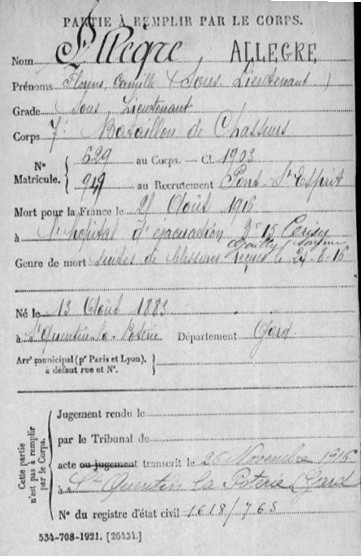 PARTIE À REMPLIR PAR LE CORPS.
Nom Allègre ALLEGRE
Prénoms Florens, Camille (Sous-Lieutenant)
Grade Sous Lieutenant
Corps 7e Bataillon de Chasseurs
N° Matricule. { 629 au Corps. — Cl. 1903
949 au Recrutement Pont-St-Esprit
Mort pour la France le 25 Août 1916
à l'hôpital d'évacuation N° 15 Cerisy Gailly Somme
Genre de mort Suites de blessures reçues le 24-8-16
Né le 13 Août 1883
à St Quentin-la-Poterie Département Gard
Arrt municipal (pr Paris et Lyon),
à défaut rue et N°.
Cette partie
n'est pas à remplir
par le Corps.
Jugement rendu le
par le Tribunal de
acte ou jugement transcrit le 26 Novembre 1916
à St Quentin la Poterie (Gard)
N° du registre d'état civil 1618/765
534-708-1921. [26434.]